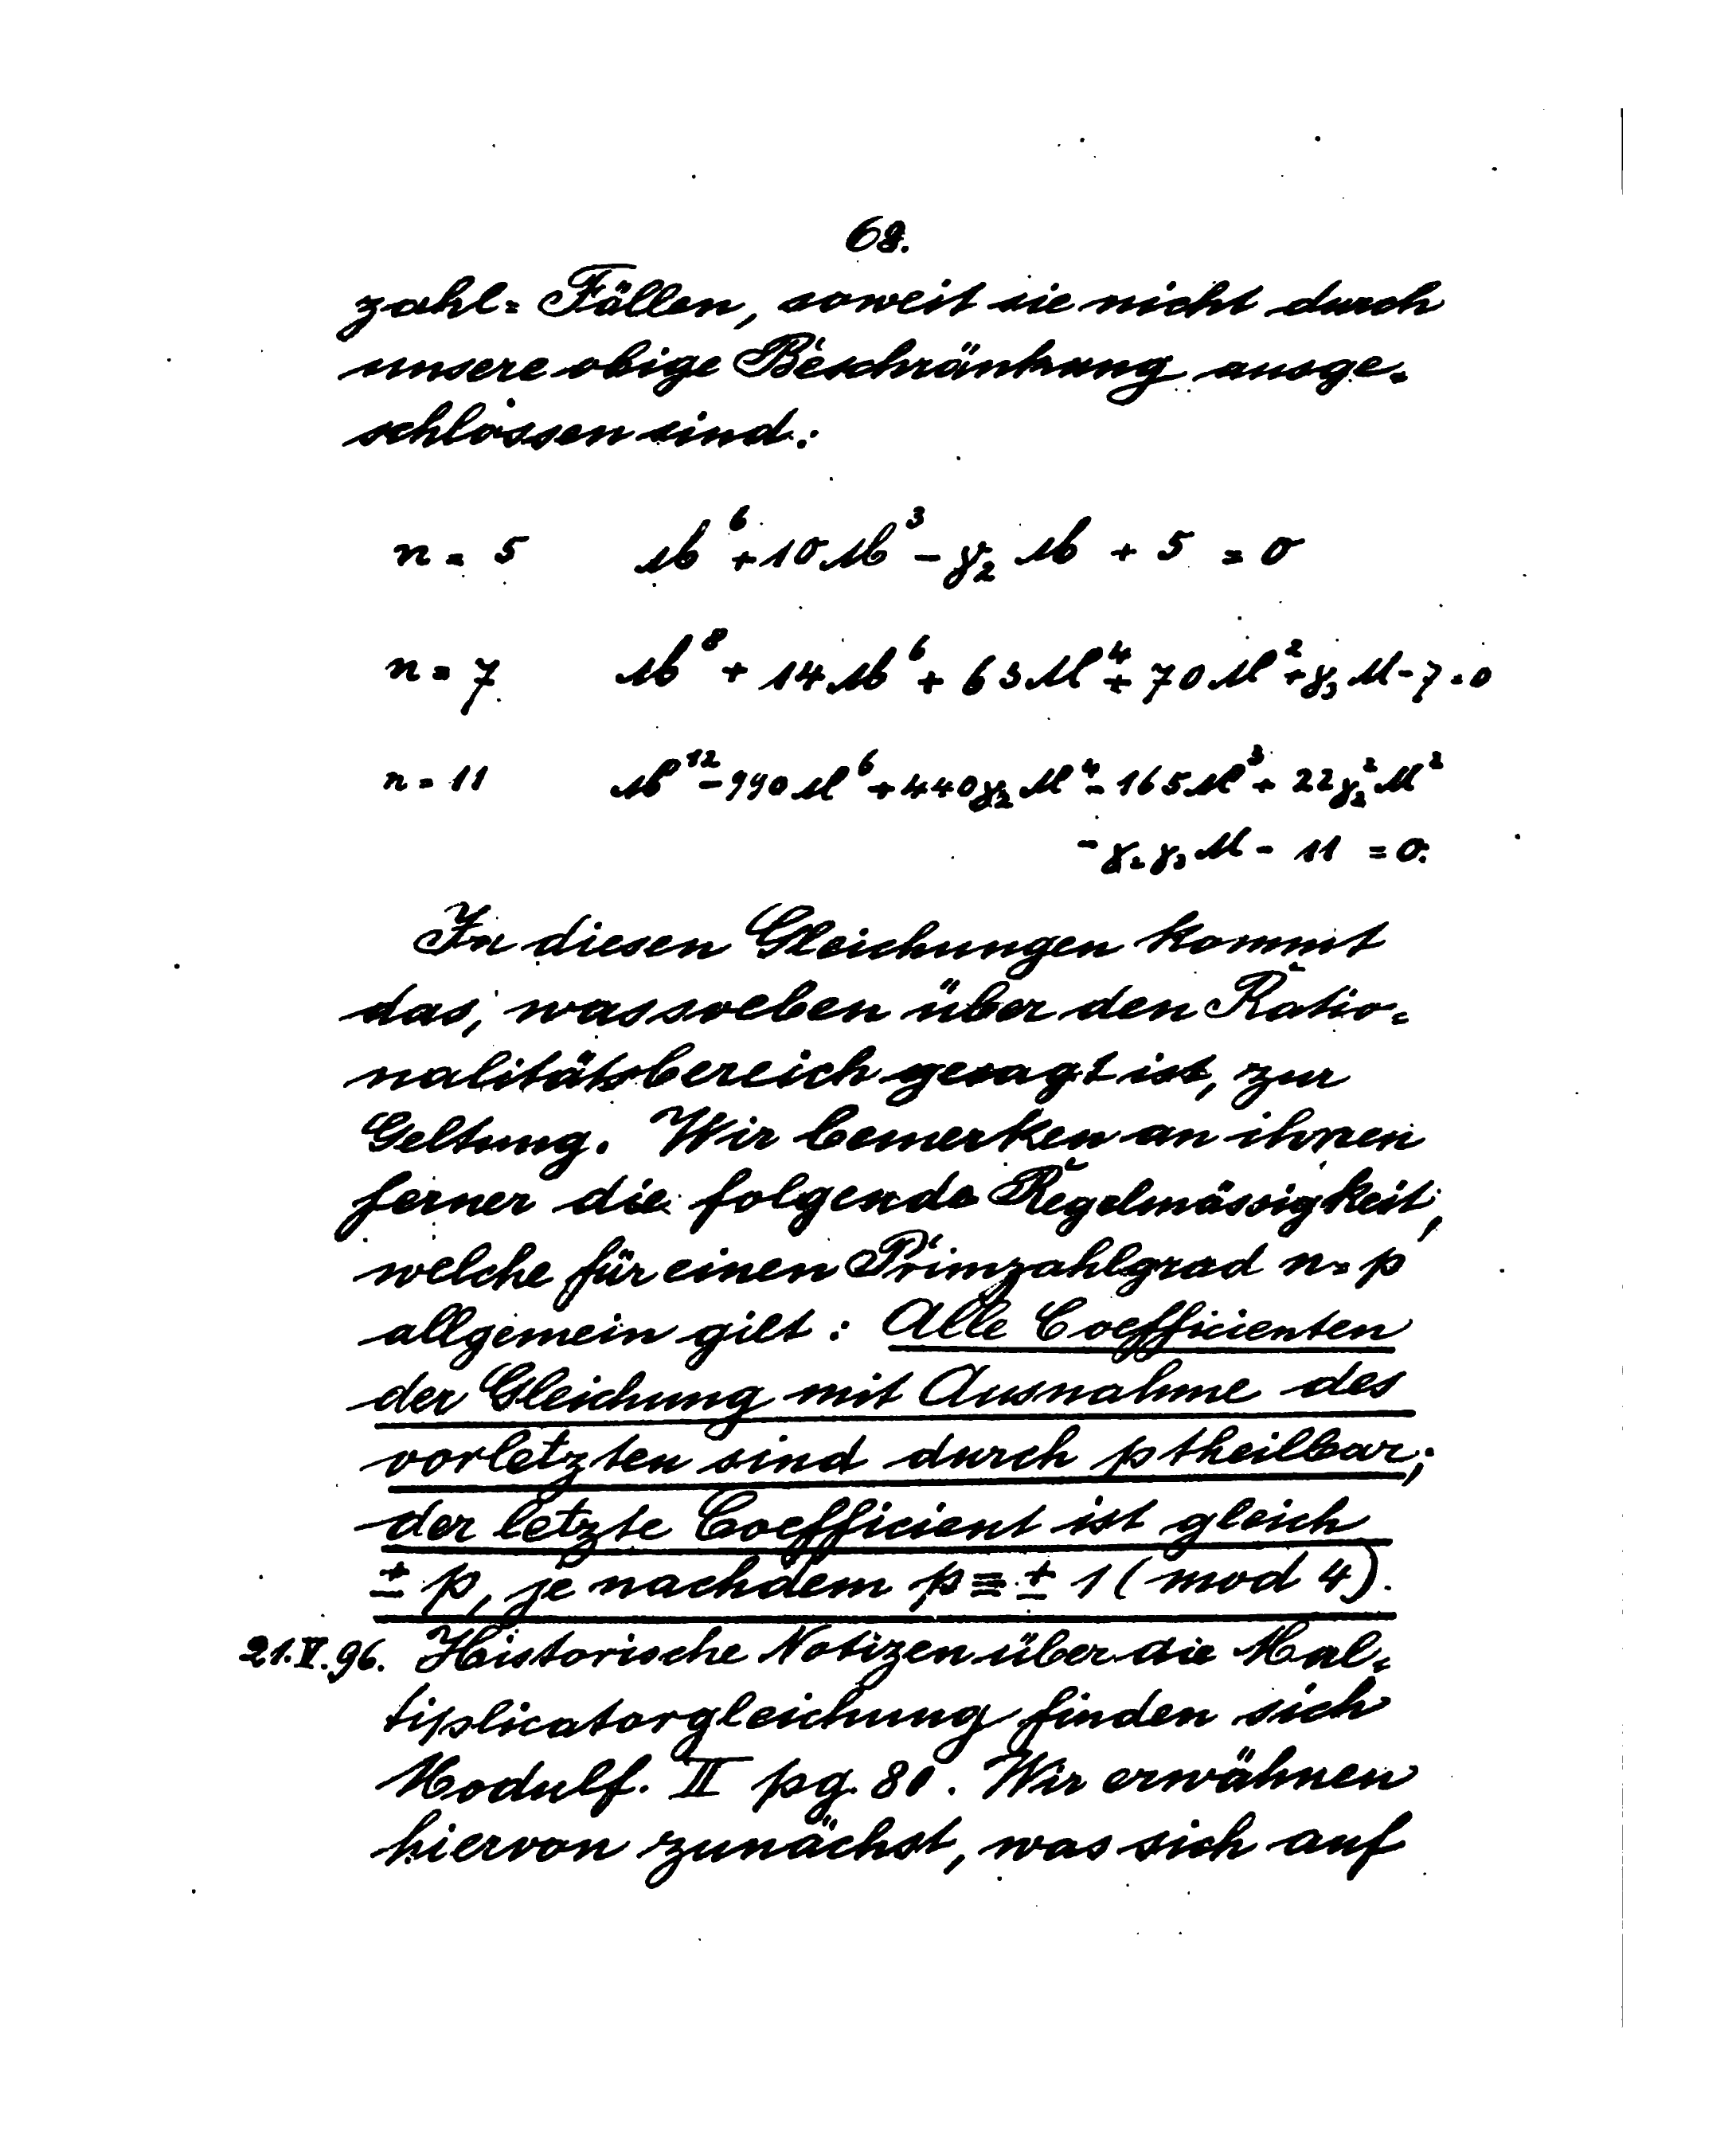 68.
zahl= Fällen, soweit sie nicht durch
unsere obige Beschränkung ausge=
schlossen sind:
n = 5 M⁶ + 10 M³ - γ₂ M + 5 = 0
n = 7 M⁸ + 14 M⁶ + 63 M⁴ + 70 M² + γ₃ M - 7 = 0
n = 11 M¹² - 990 M⁶ + 440 γ₂ M⁴ - 165 M³ + 22 γ₂² M²
- γ₂ γ₃ M - 11 = 0.
In diesen Gleichungen kommt
das, was soeben über den Ratio=
nalitätsbereich gesagt ist, zur
Geltung. Wir bemerken an ihnen
ferner die folgende Regelmässigkeit,
welche für einen Primzahlgrad n = p
allgemein gilt: Alle Coefficienten
der Gleichung mit Ausnahme des
vorletzten sind durch p theilbar;
der letzte Coefficient ist gleich
± p, je nachdem p ≡ ± 1 (mod 4).
21.V.96. Historische Notizen über die Mul=
tiplicatorgleichung finden sich
Modulf. II pg. 80. Wir erwähnen
hiervon zunächst, was sich auf